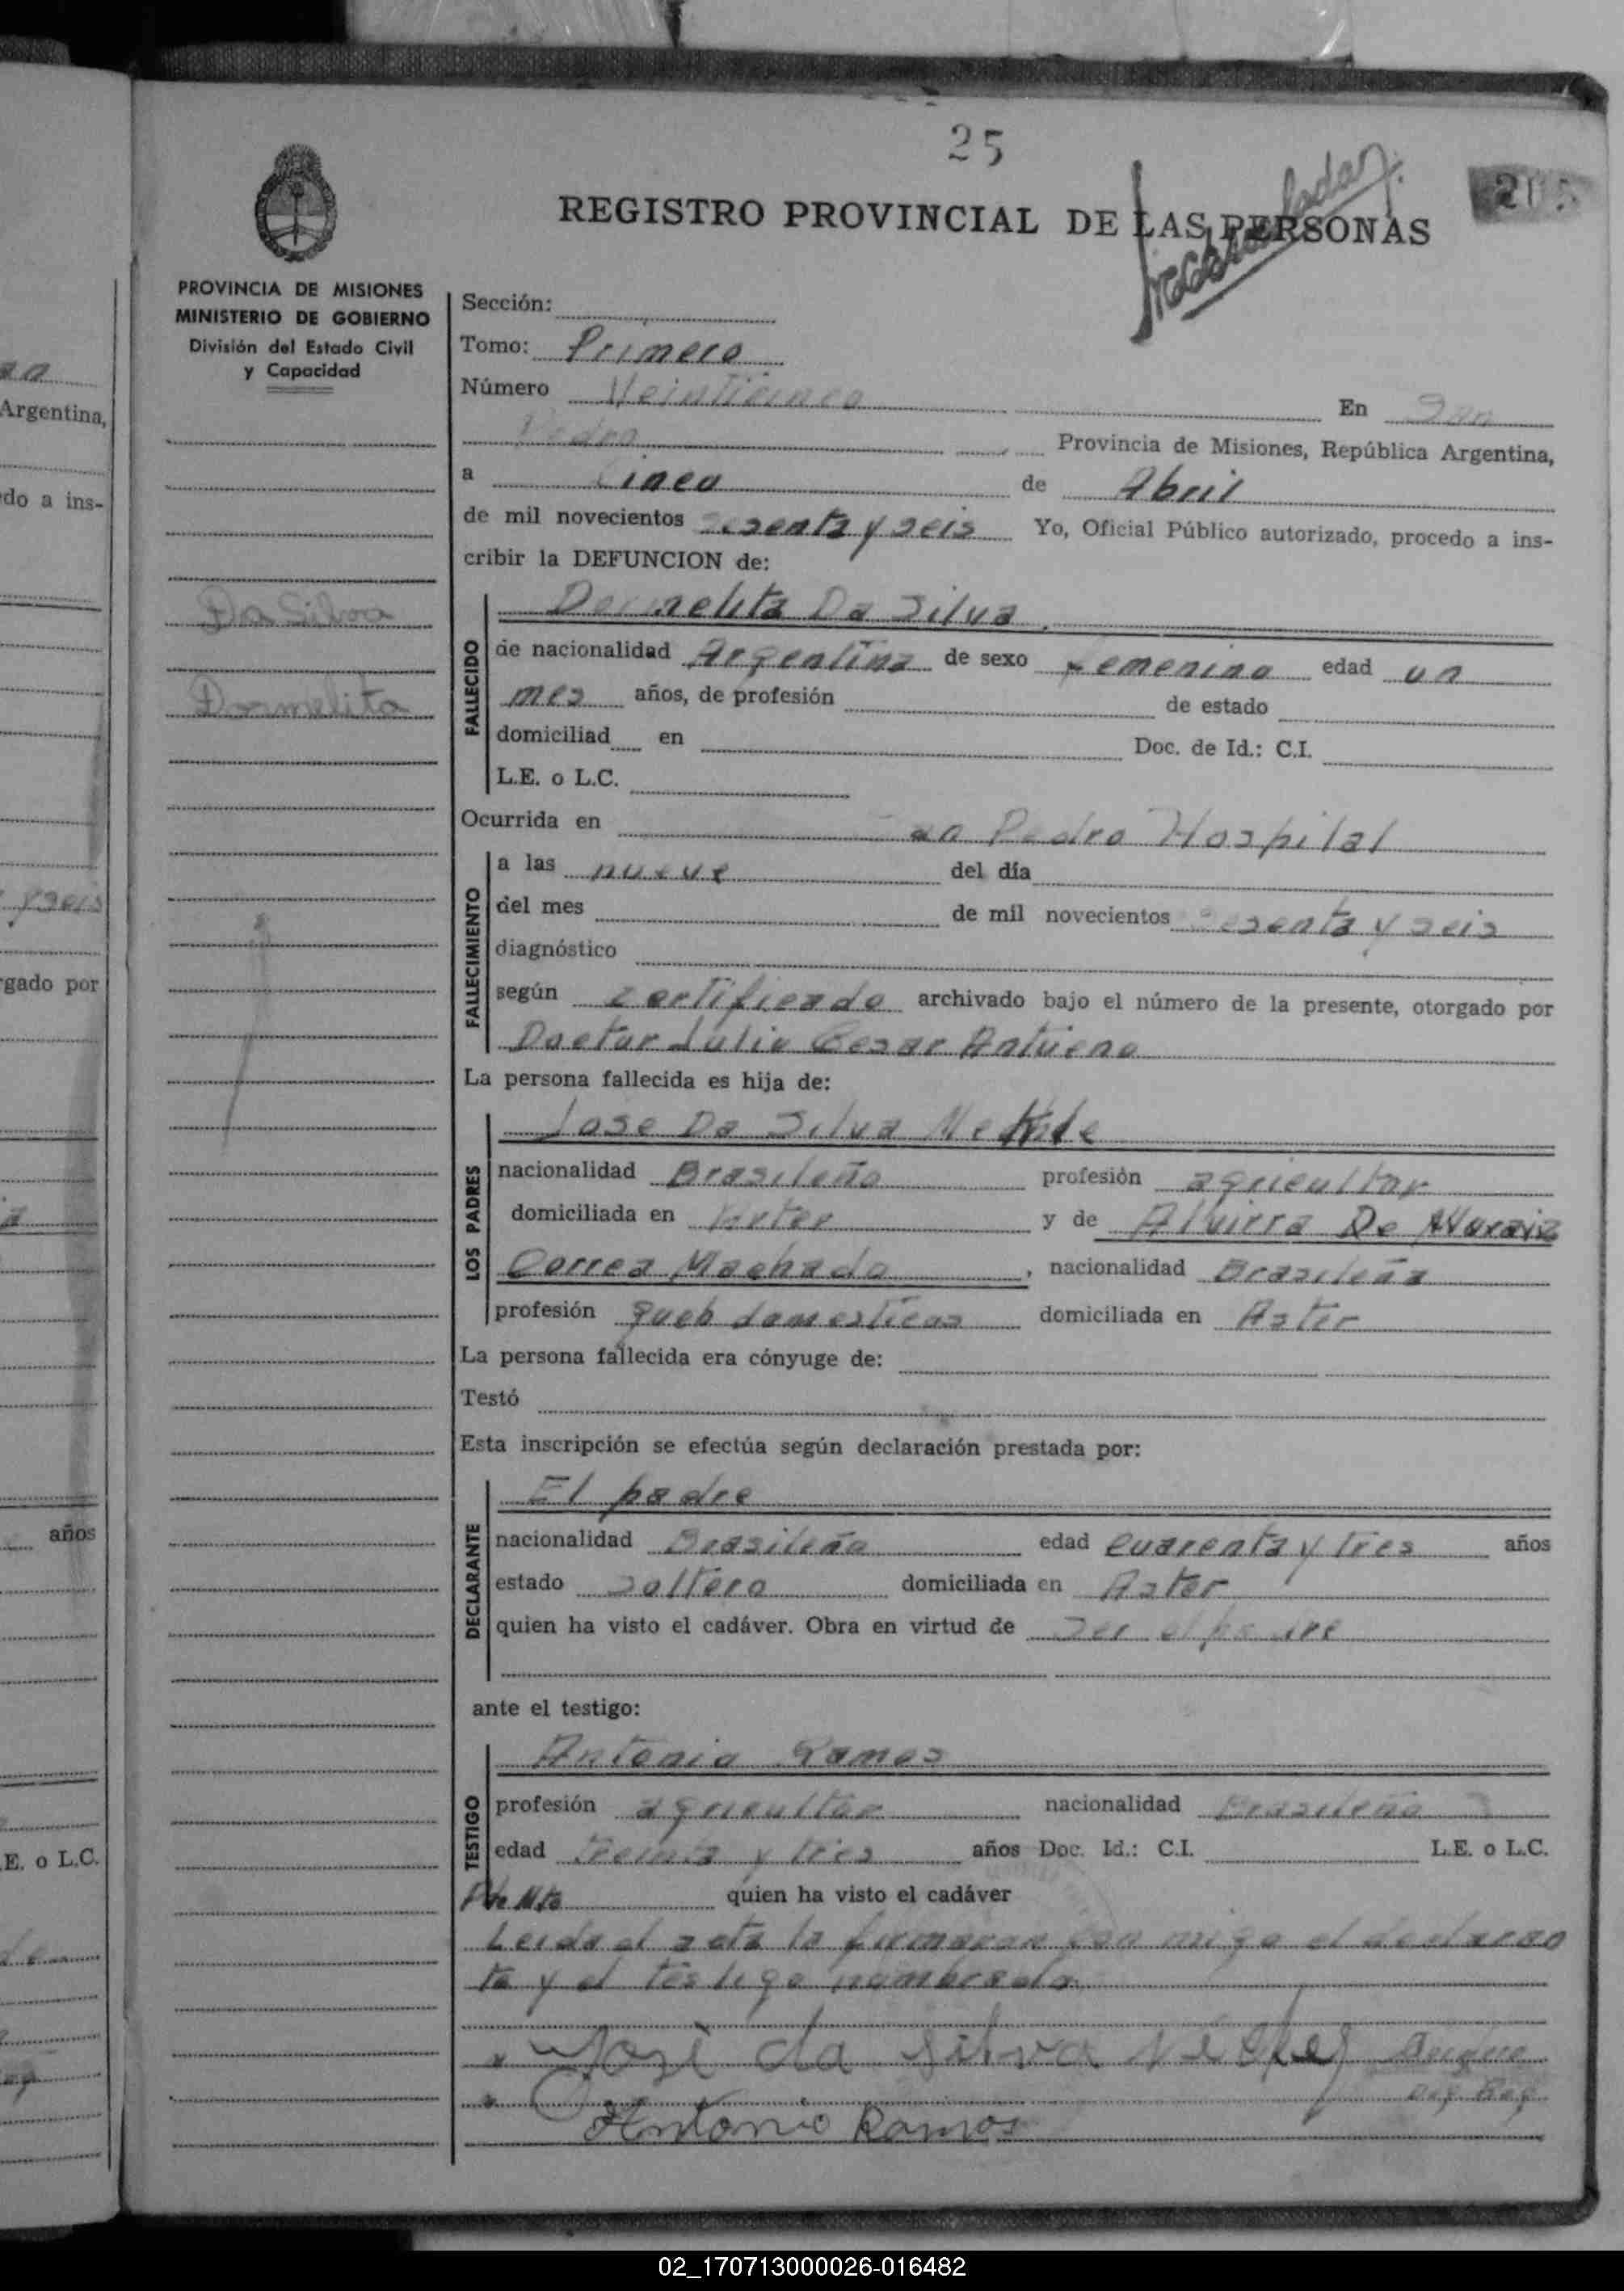 25
205
REGISTRO PROVINCIAL DE LAS PERSONAS
PROVINCIA DE MISIONES
MINISTERIO DE GOBIERNO
División del Estado Civil
y Capacidad
Da Silva
Dormelita
Sección:
Tomo: Primero
Número Veinticinco En San
Pedro Provincia de Misiones, República Argentina,
a Cinco de Abril
de mil novecientos sesenta y seis Yo, Oficial Público autorizado, procedo a ins-
cribir la DEFUNCION de:
FALLECIDO
Dormelita Da Silva
de nacionalidad Argentina de sexo femenino edad un
mes años, de profesión de estado
domiciliad en Doc. de Id.: C.I.
L.E. o L.C.
Ocurrida en San Pedro Hospital
FALLECIMIENTO
a las nueve del día
del mes de mil novecientos sesenta y seis
diagnóstico
según certificado archivado bajo el número de la presente, otorgado por
Doctor Julio Cesar
La persona fallecida es hija de:
LOS PADRES
Jose Da Silva
nacionalidad Brasileño profesión agricultor
domiciliada en y de Alvirra De
Correa Machado, nacionalidad Brasileña
profesión queh domesticos domiciliada en Aster
La persona fallecida era cónyuge de:
Testó
Esta inscripción se efectúa según declaración prestada por:
DECLARANTE
El padre
nacionalidad Brasileña edad cuarenta y tres años
estado soltero domiciliada en Aster
quien ha visto el cadáver. Obra en virtud de ser el padre
ante el testigo:
TESTIGO
Antonio Ramos
profesión agricultor nacionalidad Brasileño
edad treinta y tres años Doc. Id.: C.I. L.E. o L.C.
quien ha visto el cadáver
Leida el acta la firmaran con migo el declaran
te y el testigo nombrado
José da Silva
Antonio Ramos
Argentina,
do a ins-
y seis
rgado por
años
E. o L.C.
02_170713000026-016482